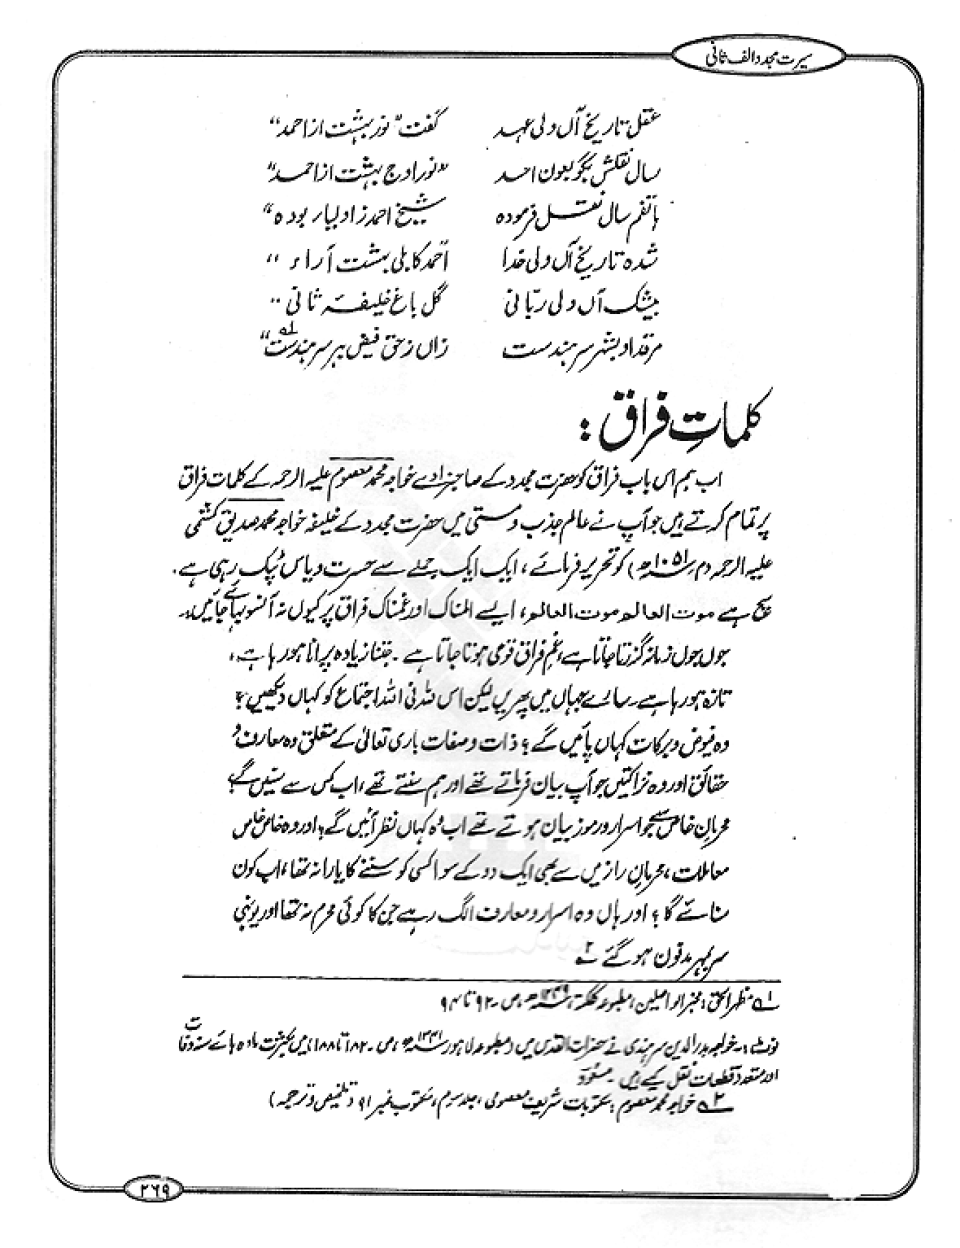 سیرت مجدد الف ثانی
عقل تاریخ آں ولی عہد گفت "نور بہشت از احمد"
سال نقلش بگو بعون احد "نور اوج بہشت از احمد"
ہاتفم سال نقل فرمودہ شیخ احمد زاد لبار بودہ"
شدہ تاریخ آں ولی خدا احمد کابلی بہشت آراء"
بیشک آں ولی ربّانی گل باغ خلیفہ ثانی"
مرقد او بشہر سرہند ست زاں زحق فیض بر سرہند ست" ؎۱
کلماتِ فراق :
اب ہم اس باب فراق کو حضرت مجدد کے صاحبزادے خواجہ محمد معصوم علیہ الرحمہ کے کلمات فراق
پر تمام کرتے ہیں جو آپ نے عالم جذب و مستی میں حضرت مجدد کے خلیفہ خواجہ محمد صدیق کشمی
علیہ الرحمہ (م ۱۰۵۱ھ) کو تحریر فرمائے، ایک ایک جملے سے حسرت و یاس ٹپک رہی ہے۔
سچ ہے موت العالِم موت العالَم، ایسے المناک اور غمناک فراق پر کیوں نہ آنسو بہائے جائیں۔
جوں جوں زمانہ گزرتا جاتا ہے، غم فراق قوی ہوتا جاتا ہے۔ جتنا زیادہ پرانا ہو رہا ہے،
تازہ ہو رہا ہے۔ سارے جہاں میں پھریں لیکن اس للّٰہ فی اللہ اجتماع کو کہاں دیکھیں؟
وہ فیوض و برکات کہاں پائیں گے؟ ذات و صفات باری تعالیٰ کے متعلق وہ معارف و
حقائق اور وہ نزاکتیں جو آپ بیان فرماتے تھے اور ہم سنتے تھے، اب کس سے سنیں گے؟
محرمانِ خاص سے جو اسرار و رموز بیان ہوتے تھے اب وہ کہاں نظر آئیں گے؟ اور وہ خاص خاص
معاملات، محرمانِ راز میں سے بھی ایک دو کے سوا کسی کو سننے کا یارا نہ تھا، اب کون
سنائے گا؟ اور ہاں وہ اسرار و معارف الگ رہے جن کا کوئی محرم نہ تھا اور یونہی
سر بمہر مدفون ہو گئے ؎۲
؎۱ مظہر الحق: مخبر الواصلین، مطبوعہ کلکتہ، ص۔ ۹۲ تا ۹۴
نوٹ:۔ خواجہ بدر الدین سرہندی نے حضرات القدس میں (مطبوعہ لاہور ۱۳۴۱ھ، ص۔ ۱۸۲ تا ۱۸۸) میں بکثرت مادہ ہائے سنہ وفات
اور متعدد قطعات نقل کیے ہیں۔ مسعود
؎۲ خواجہ محمد معصوم: مکتوبات شریف معصومی، جلد سوم، مکتوب نمبر ۹۱ (تلخیص و ترجمہ)
۲۶۹